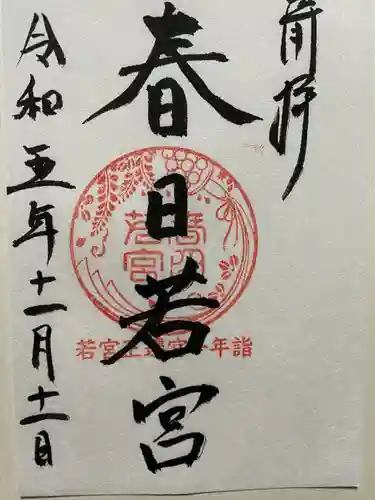 拝
春日若宮
令和五年十一月十一日
春日若宮
若宮正遷宮一年詣